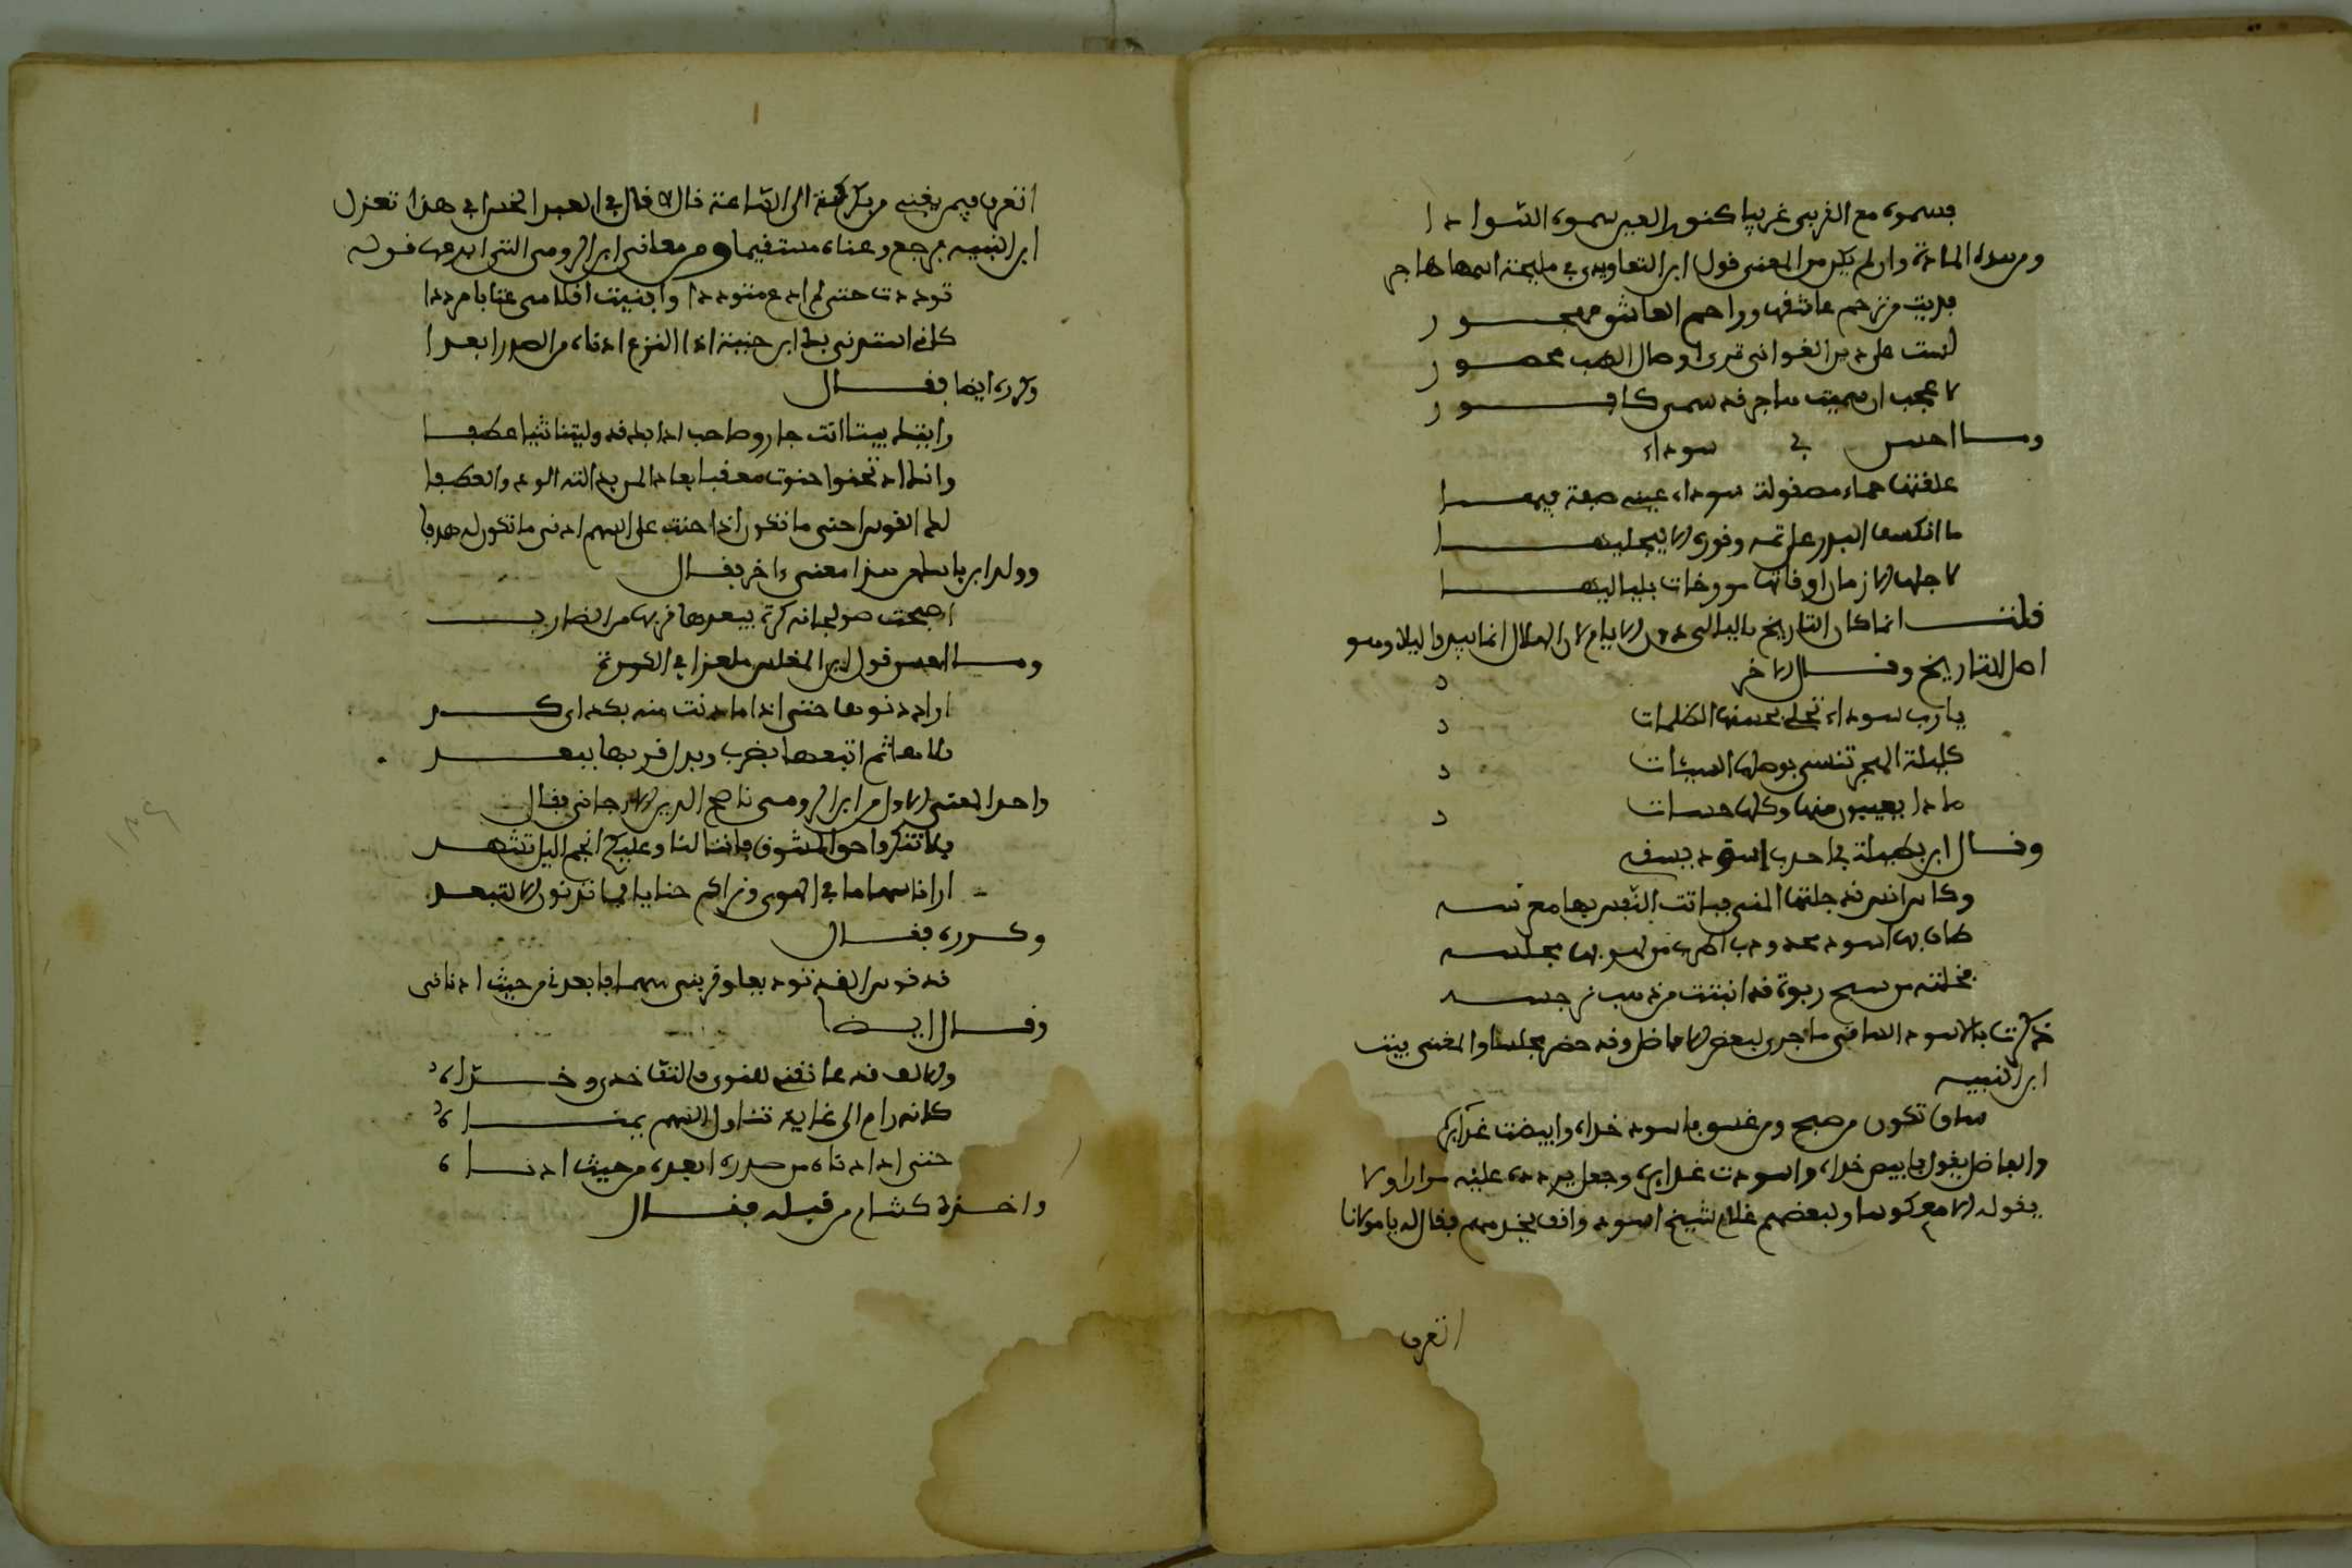 فسموه مع القربى غريبا كنور العين سموه السوادا
ومن هذه المادة وان لم يكن من المعنى قول ابن التعاويذي في مليحة اسمها هاجر
فديت من زحم عاشقها وراحم العاشق مهجور
لست على دين الغواني ترى وصال الصب محصور
لا عجب ان سميت هاجر قد سمى كافور
وما احسن في سوداء
علقتها حماء مصقولة سوداء عينى صفة فيها
ما انكسف البدر على تمه ونوره الا ليحكيها
لاجلها الازمان اوقاتها مورخات بلياليها
قلت انما كان التاريخ بالليالي دون الايام لان الهلال انما يبدو ليلا وهو
اصل التاريخ وقال الاخر
يا رب سوداء تجلى بحسنها الظلمات
كليلة الهجر تنسى بوصلها السيئات
ماذا يعيبون منها وكلها حسنات
وقال ابن بطة في احدب اسود يسقي
وكاس انس قد جلتها المنى فباتت النفس بها معرسه
طاف بها اسود محدودب اطرب من لهو بها مجلسه
فخلته من سبج ربوة قد انبتت من ذهب نرجسه
ذكرت بالاسود الساقي ما جرى لبعض الافاضل وقد حضر مجلسا والمغني بيت
ابن النبيه
ساق تكون من صبح ومن غسق فاسود خداه وابيضت غدايره
والفاضل يقول فابيض خداه واسودت غدايره وجعل يردده عليه مرارا ولا
يقوله الا معكوسا ولبعضهم غلام شيخ اسود واقف يخدمهم فقال له يا مولانا
اتعرف
اتعرف فيمن يغني من بكرة الى الساعة قال لا قال في العبد الخدام في هذا تغزل
ابن النبيه فرجع وغناه مستقيما ومن معاني ابن الرومي التي ابدعها قوله
توددت حتى لم ادع متوددا وافنيت اقلامي عتابا مرددا
كاني استدني بك ابن حنية اذا النزع ادناه من الصدر ابعدا
وكرره ايضا فقال
رايتك بينا انت جار وصاحب اذا بك قد وليتنا ثنيا عطفا
وانك اذ تحنوا حنوت معقبا بعادا لمن بادلته الود والعطفا
لكالقوس احنى ما تكون اذا حنت على السهم ادنى ما تكون له قذفا
وولد ابن بابك من هذا معنى ءاخر فقال
اصبحت صولجانه كرة يبعدها قربها من الضارب
وما احسن قول ابن المغلس ملغزا في الكرة
اراد دنوها حتى اذا ما دنت منه بكد اي كد
قلاها ثم اتبعها بضرب وبدل قربها ببعد
واخذ المعنى الاول من ابن الرومي ناصح الدين الارجاني فقال
فلا تنكروا حق المشوق فاننا لنا وعليكم انجم اليل تشهد
ارانا سهاما في الهوى ونراكم حنايا فما تدنون الا لتبعد
وكرره فقال
قد قوس القد توديعا وقربني سهما فابعدني من حيث ادناني
وقال ايضا
والالف قد عانقني للنوى فالتف خدي وخداه
كانه رام الى غاية تناول السهم بيمناه
حتى اذا ادناه من صدره ابعده من حيث ادناه
واخذه كشاجم من قبله فقال